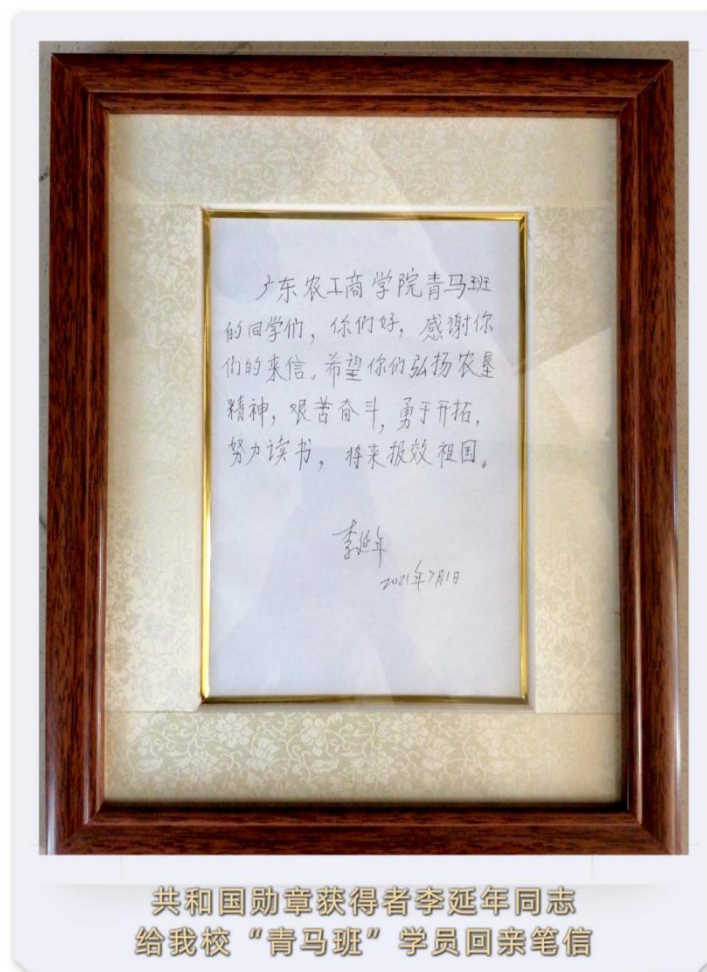 广东农工商学院青马班
的同学们，你们好，感谢你
们的来信。希望你们弘扬农垦
精神，艰苦奋斗，勇于开拓，
努力读书，将来报效祖国。
李延年
2021年7月1日
共和国勋章获得者李延年同志
给我校“青马班”学员回亲笔信